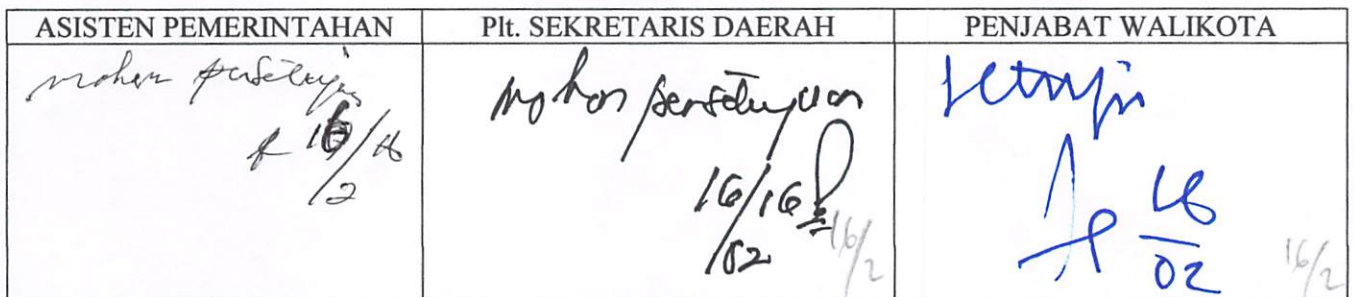 ASISTEN PEMERINTAHAN
Plt. SEKRETARIS DAERAH
PENJABAT WALIKOTA
mohon persetujuan
16/16
/2
mohon persetujuan
16/16
/02
16/2
setuju
16
02
16/2